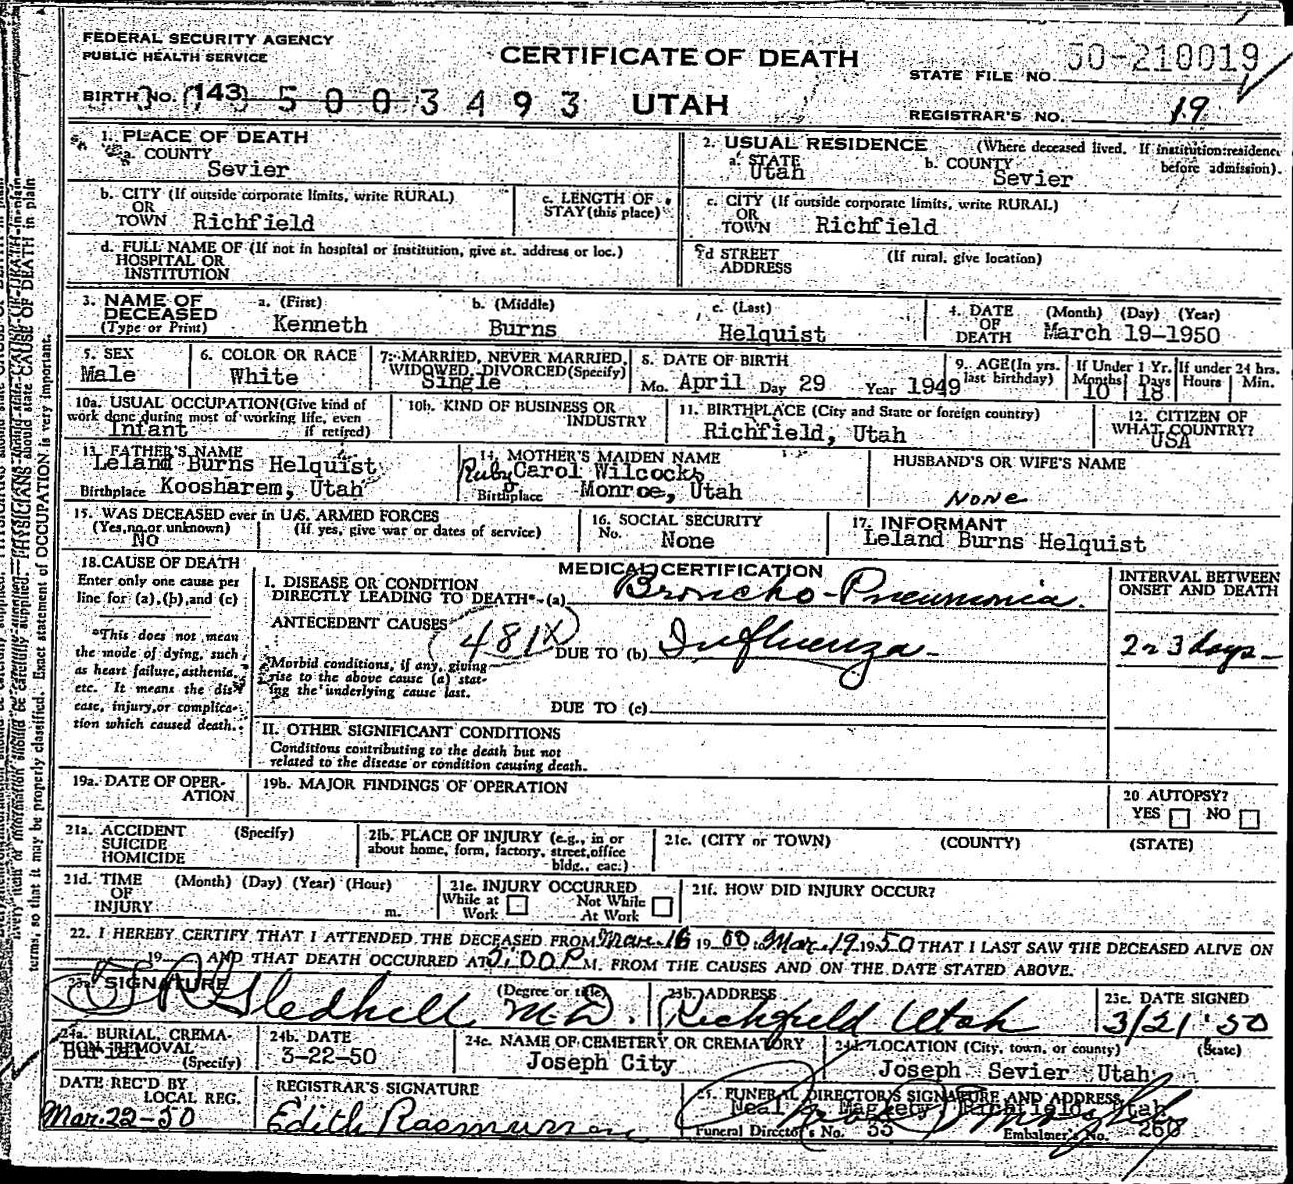 FEDERAL SECURITY AGENCY
PUBLIC HEALTH SERVICE
CERTIFICATE OF DEATH
STATE FILE NO. 50-210019
BIRTH NO. 143 5003493 UTAH
REGISTRAR'S NO. 19
1. PLACE OF DEATH
a. COUNTY
Sevier
2. USUAL RESIDENCE (Where deceased lived. If institution:residence before admission).
a. STATE Utah
b. COUNTY Sevier
b. CITY (If outside corporate limits, write RURAL)
OR
TOWN Richfield
c. LENGTH OF
STAY (this place)
c. CITY (If outside corporate limits, write RURAL)
OR
TOWN Richfield
d. FULL NAME OF (If not in hospital or institution, give st. address or loc.)
HOSPITAL OR
INSTITUTION
d STREET (If rural, give location)
ADDRESS
3. NAME OF DECEASED
(Type or Print)
a. (First) Kenneth
b. (Middle) Burns
c. (Last) Helquist
4. DATE OF DEATH (Month) (Day) (Year)
March 19-1950
5. SEX
Male
6. COLOR OR RACE
White
7. MARRIED, NEVER MARRIED,
WIDOWED, DIVORCED (Specify)
Single
8. DATE OF BIRTH
Mo. April Day 29 Year 1949
9. AGE (In yrs. last birthday)
If Under 1 Yr. Months 10 Days 18
If under 24 hrs. Hours Min.
10a. USUAL OCCUPATION (Give kind of
work done during most of working life, even
if retired)
Infant
10b. KIND OF BUSINESS OR
INDUSTRY
11. BIRTHPLACE (City and State or foreign country)
Richfield, Utah
12. CITIZEN OF
WHAT COUNTRY?
USA
13. FATHER'S NAME
Leland Burns Helquist
Birthplace Koosharem, Utah
14. MOTHER'S MAIDEN NAME
Ruby Carol Wilcocks
Birthplace Monroe, Utah
HUSBAND'S OR WIFE'S NAME
None
15. WAS DECEASED ever in U.S. ARMED FORCES
(Yes, no, or unknown) (If yes, give war or dates of service)
No
16. SOCIAL SECURITY
No. None
17. INFORMANT
Leland Burns Helquist
18. CAUSE OF DEATH
Enter only one cause per
line for (a), (b), and (c)
*This does not mean
the mode of dying, such
as heart failure, asthenia,
etc. It means the dis-
ease, injury, or complica-
tion which caused death.
MEDICAL CERTIFICATION
I. DISEASE OR CONDITION
DIRECTLY LEADING TO DEATH*-(a) Broncho-Pneumonia.
ANTECEDENT CAUSES
481X
DUE TO (b) Influenza
*Morbid conditions, if any, giving
rise to the above cause (a) stat-
ing the underlying cause last.
DUE TO (c)
INTERVAL BETWEEN
ONSET AND DEATH
2 n 3 days
II. OTHER SIGNIFICANT CONDITIONS
Conditions contributing to the death but not
related to the disease or condition causing death.
19a. DATE OF OPER-
ATION
19b. MAJOR FINDINGS OF OPERATION
20 AUTOPSY?
YES NO
21a. ACCIDENT (Specify)
SUICIDE
HOMICIDE
21b. PLACE OF INJURY (e.g., in or
about home, form, factory, street, office
bldg., eac.)
21c. (CITY or TOWN) (COUNTY) (STATE)
21d. TIME (Month) (Day) (Year) (Hour)
OF
INJURY m.
21e. INJURY OCCURRED
While at Work Not While At Work
21f. HOW DID INJURY OCCUR?
22. I HEREBY CERTIFY THAT I ATTENDED THE DECEASED FROM Mar. 16 1950, Mar. 19 1950 THAT I LAST SAW THE DECEASED ALIVE ON
19 AND THAT DEATH OCCURRED AT :00 P M. FROM THE CAUSES AND ON THE DATE STATED ABOVE.
23a. SIGNATURE (Degree or title)
Gledhill, M.D.
23b. ADDRESS
Richfield Utah
23c. DATE SIGNED
3/21'50
24a. BURIAL, CREMA-
TION REMOVAL
(Specify)
Burial
24b. DATE
3-22-50
24c. NAME OF CEMETERY OR CREMATORY
Joseph City
24d. LOCATION (City, town, or county) (State)
Joseph Sevier Utah
DATE REC'D BY
LOCAL REG.
Mar. 22-50
REGISTRAR'S SIGNATURE
Edith Rasmussen
25. FUNERAL DIRECTOR'S SIGNATURE AND ADDRESS
Richfield, Utah
Funeral Director's No. 33
Embalmer's No. 260
CAUSE OF DEATH in plain
terms, so that it may be properly classified. Exact statement of OCCUPATION is very important.